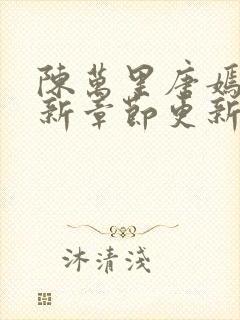 陳萬里唐嫣
新章節更新
沐清淺